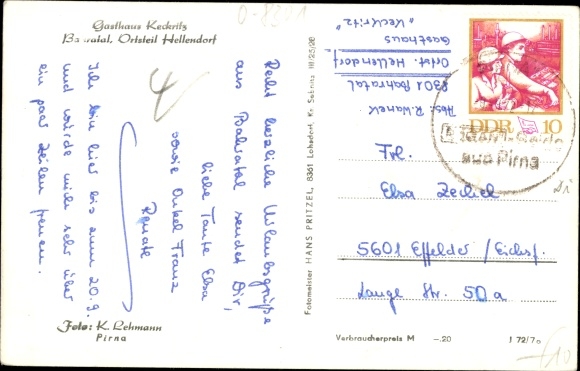 Gasthaus Keckritz
Bahratal, Ortsteil Hellendorf
0-8301
Recht herzliche Urlaubsgrüße
aus Bahratal sendet Dir,
liebe Tante Elsa
sowie Onkel Franz
Renate
Ich bin hier bis zum 20.9.
und würde mich sehr über
ein paar Zeilen freuen.
Foto: K. Lehmann
Pirna
Fotomeister HANS PRITZEL, 8361 Lohsdorf, Kr. Sebnitz III/25/28
Abs: R. Wanek
8301 Bahratal
Ortst. Hellendorf
Gasthaus
"Keckritz"
DDR 10
aus Pirna
Frl.
Elsa Zechel
5601 Effelder /Eichsf.
Lange Str. 50a
Verbraucherpreis M -.20
J 72/70